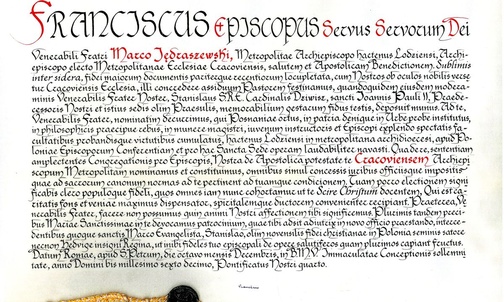 FRANCISCUS EPISCOPUS Servus Servorum Dei
Venerabili Fratri Marco Jędraszewski, Metropolitae Archiepiscopo hactenus Lodziensi, Archi-
episcopo electo Metropolitanae Ecclesiae Cracoviensis, salutem et Apostolicam Benedictionem. Sublimis
inter sidera, fidei maiorum documentis pariterque recentiorum locupletata, cum Nostros ob oculos nobilis verse
tur Cracoviensis Ecclesia, illi concedere assiduum Pastorem festinamus, quandoquidem eiusdem modera-
minis Venerabilis Frater Noster, Stanislaus S.R.E. Cardinalis Dziwisz, sancti Ioannis Pauli II, Praede-
cessoris Nostri et istius sedis olim Praesulis, memorabilium gestarum fidus testis, deposuit munus. Ad te,
Venerabilis Frater, nominatim decurrimus, qui Posnaniae ortus, in patria denique in Urbe probe institutus,
in philosophicis praecipue cebis, in munere magistri, iuvenum instructoris et Episcopi explendo spectatis fa-
cultatibus probandisque virtutibus cumulatus, hactenus Lodziensi in metropolitana archidioecesi, apud Po-
loniae Episcoporum Conferentiam et pro hac Sancta Sede operam laudabiliter navasti. Qua de re, sententiam
amplectentes Congregationis pro Episcopis, Nostra de Apostolica potestate te Cracoviensem Archiepi
scopum Metropolitam nominamus et constituimus, omnibus simul concessis iuribus officiisque impositis
quae ad sacrorum canonum normas ad te pertinent ad tuamque condicionem. Quam porro electionem signi
ficabis clero populoque fideli, quos omnes iam nunc cohortamur ut te Deo Christum docentem, Qui est ca-
ritatis fons et veniae maximus dispensator, spiritalemque ductorem convenienter recipiant. Praeterea, Ve
nerabilis Frater, facere non possumus quin animi Nostri affectionem tibi significemus. Plurimis tandem preci-
bus Mariae Sanctissimae in te devocamus patrocinium, quae tibi adsit adnitrix in novo officio praestando, interce-
dentibus quoque sanctis Marco Evangelista, Stanislao, olim novensilis fidei christianae in Polonia seminis satore
necnon Hedvige insigni Regina, ut inibi fideles tuo episcopali de opere salutiferos quam plurimos capiant fructus.
Datum Romae, apud S. Petrum, die octavo mensis Decembris, in B.M.V. Immaculatae Conceptionis sollemni
tate, anno Domini bis millesimo sexto decimo, Pontificatus Nostri quarto.